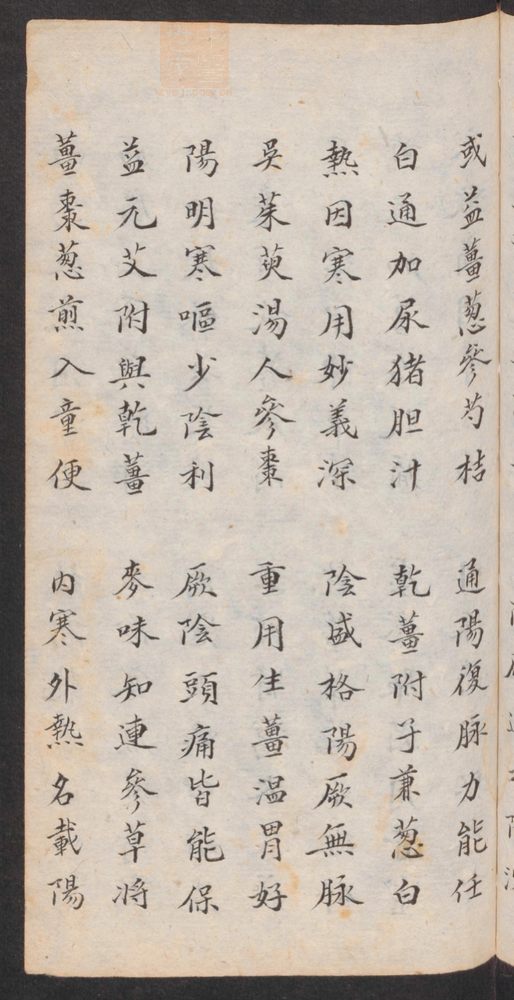 或益薑葱參芍桔 通陽復脉力能任
白通加尿猪胆汁 乾薑附子兼葱白
熱因寒用妙義深 陰盛格陽厥無脉
吳茱萸湯人參棗 重用生薑温胃好
陽明寒嘔少陰利 厥陰頭痛皆能保
益元艾附與乾薑 麥味知連參草将
薑棗葱煎入童便 内寒外熱名載陽